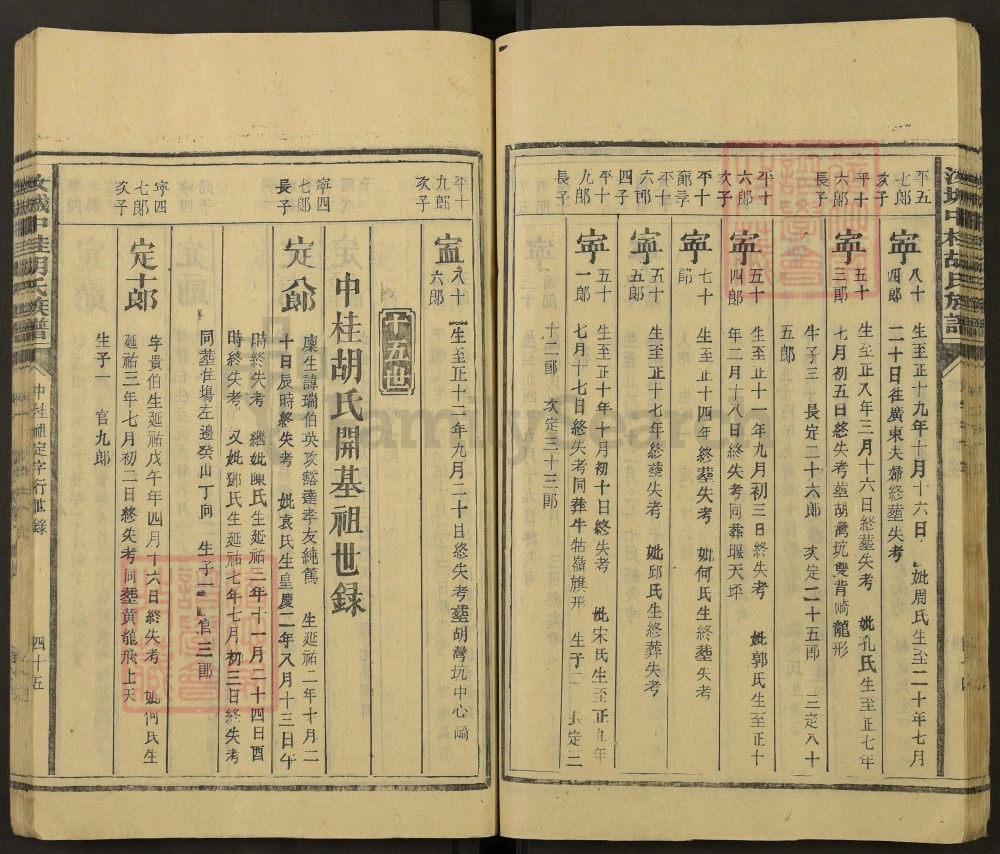 汝城中桂胡氏族譜
平五
七郎
亥子
寧八十四郎
生至正十九年十月十六日 妣周氏生至二十年七月
二十日往廣東夫婦終塟失考
平十
六郎
長子
寧五十三郎
生至正八年三月十六日終塟失考 妣孔氏生至正七年
七月初五日終失考塟胡灣坑雙背崎龍形
生子三 長定二十六郎 次定二十五郎 三定八十
五郎
平十
六郎
次子
寧五十四郎
生至正十一年九月初三日終失考 妣郭氏生至正十
年二月十八日終失考同葬堰天坪
平十
郎季
子
寧七十郎
生至正十四年終塟失考 妣何氏生終塟失考
平十
六郎
四子
寧五十五郎
生至正十七年終塟失考 妣邱氏生終葬失考
平十
九郎
長子
寧五十一郎
生至正十年十月初十日終失考 妣宋氏生至正九年
七月十七日終失考同葬牛牯嶺旗形 生子二 長定三
十二郎 次定三十三郎
平十
九郎
次子
寧八十六郎
生至正十二年九月二十日終失考塟胡灣坑中心崎
十五世
中桂胡氏開基祖世録
寧四
七郎
長子
定八郎
廩生諱瑞伯英敏豁達孝友純篤 生延祐二年十月二
十日辰時終失考 妣袁氏生皇慶二年八月十三日午
時終失考 繼妣陳氏生延祐三年十一月二十四日酉
時終失考 又妣鄧氏生延祐七年七月初三日終失考
同塟隹塲左邊癸山丁向 生子一 官三郎
寧四
七郎
次子
定十郎
字貴伯生延祐戊午年四月十六日終失考 妣何氏生
延祐三年七月初二日終失考同塟黄龍飛上天
生子一 官九郎
汝城中桂胡氏族譜
中桂祖定字行世錄
四十五
FamilySearch